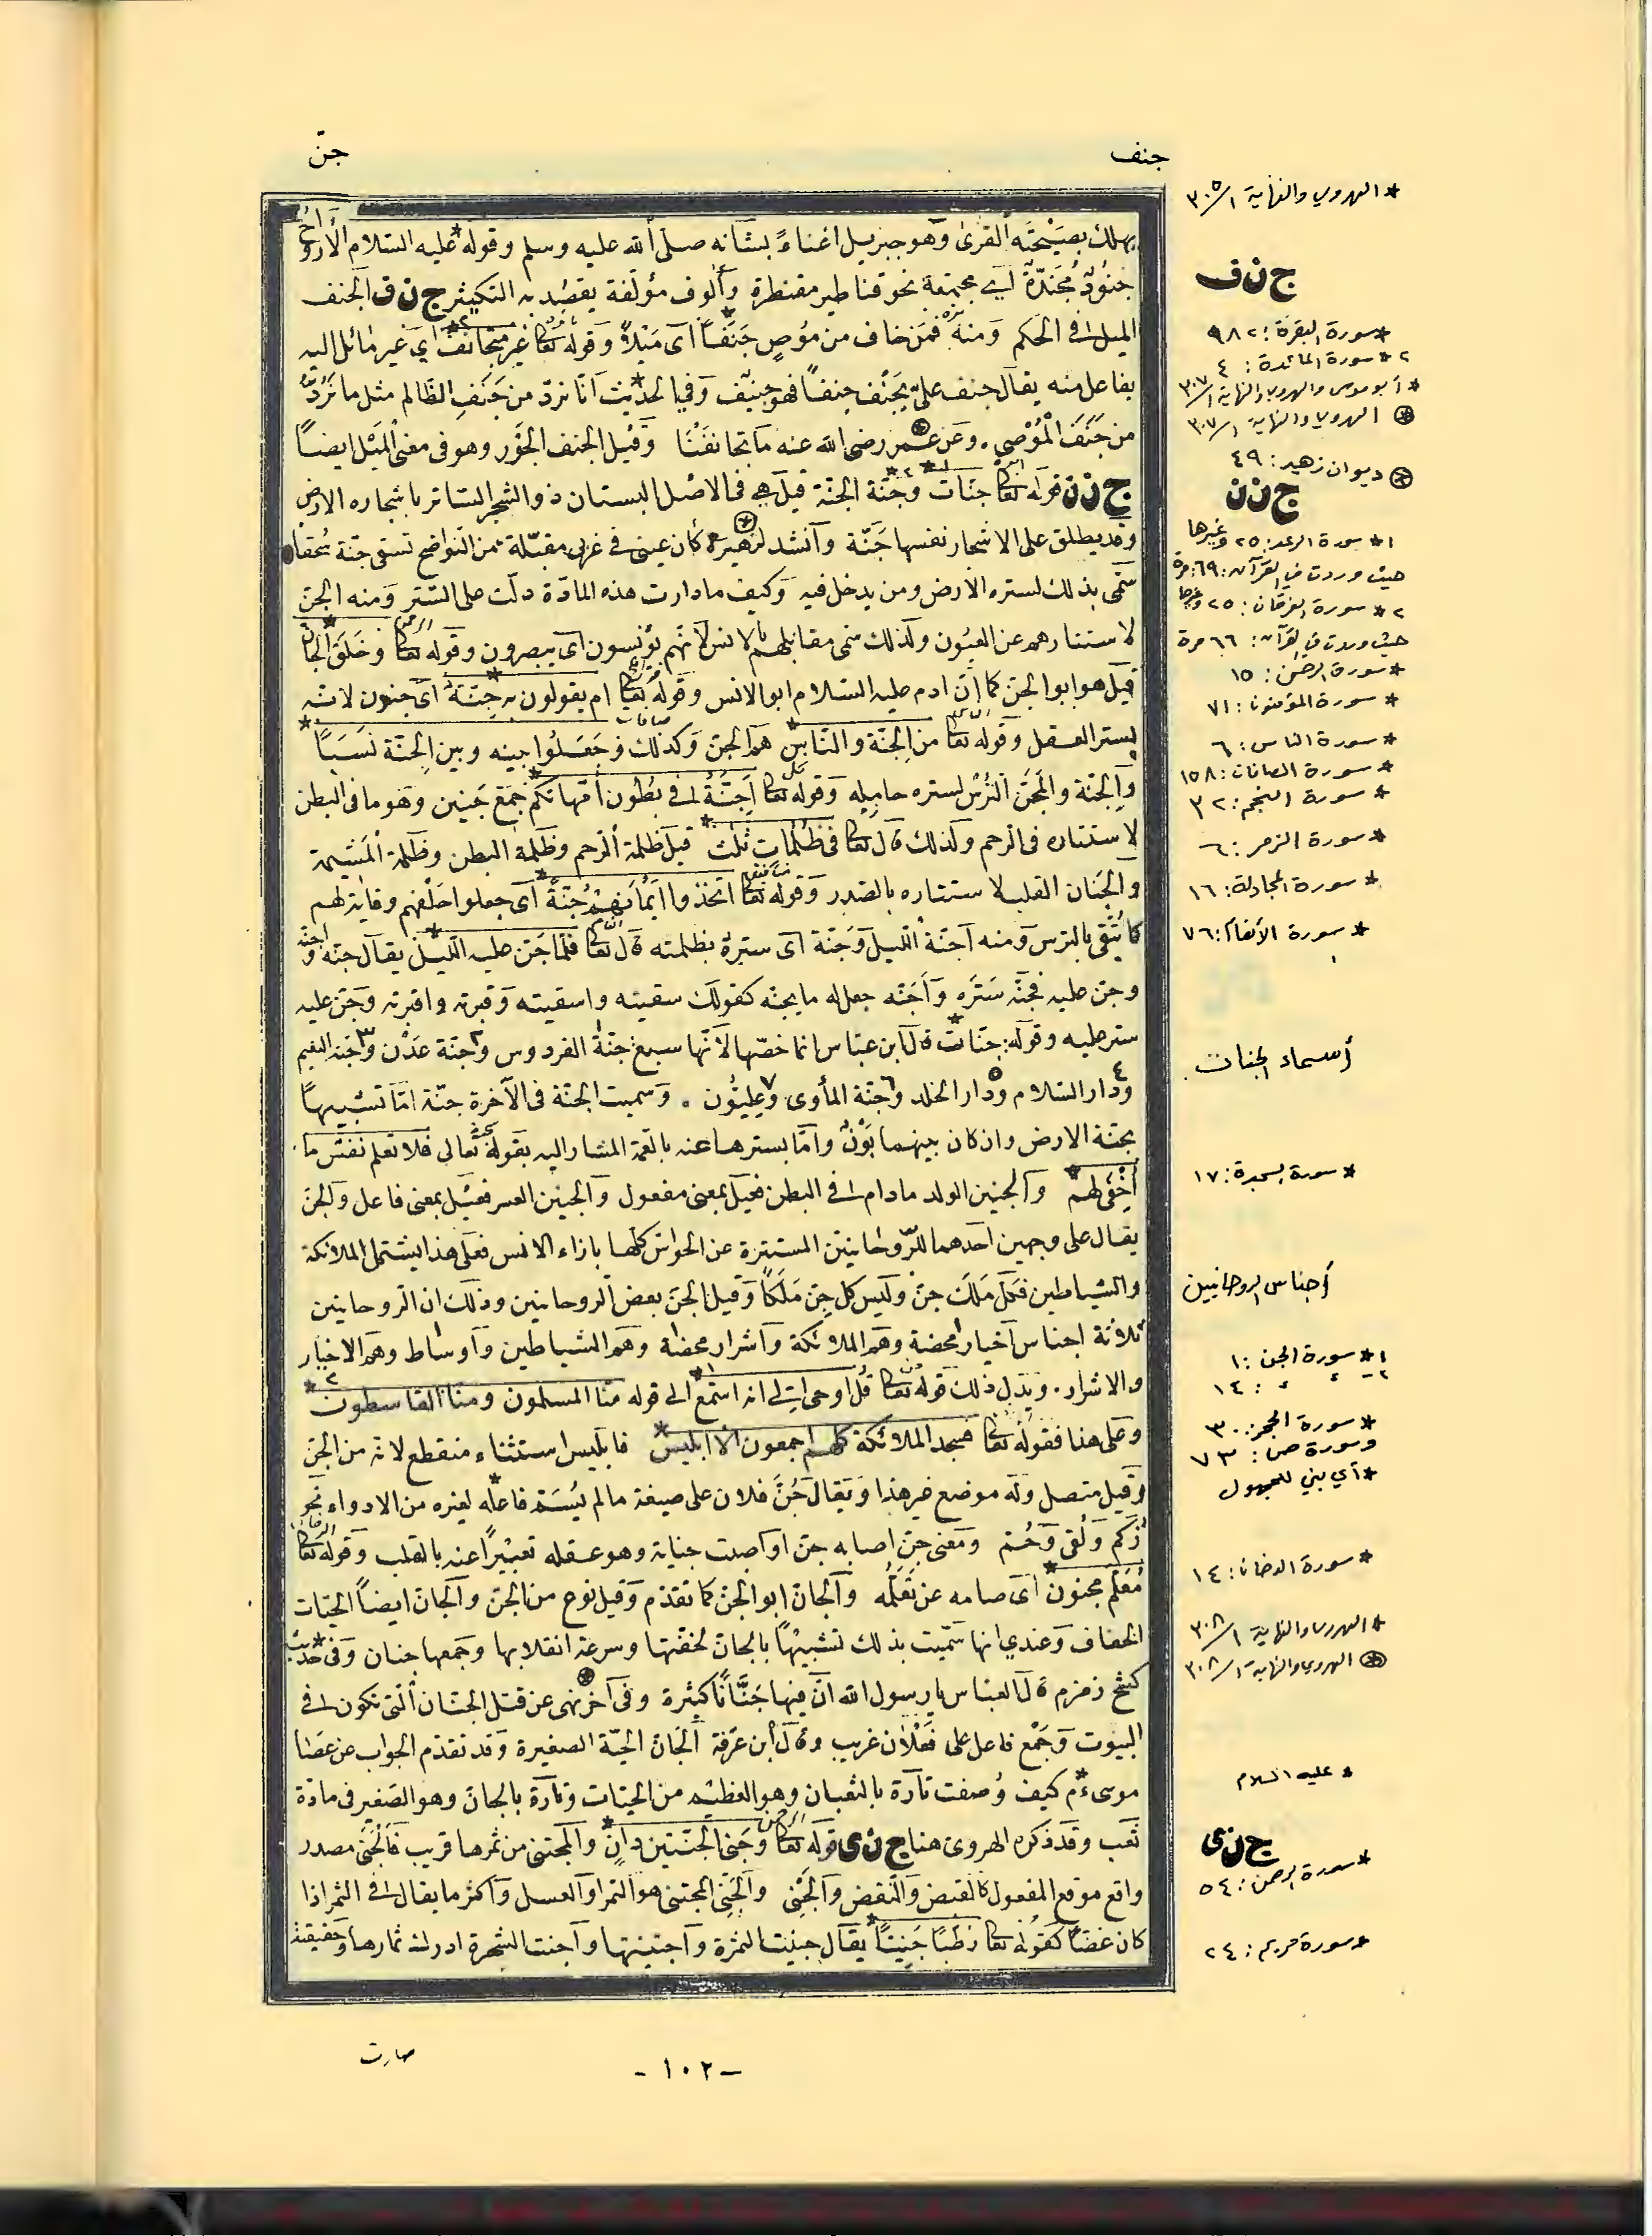 جنف
جنّ
يهلك بصيحته القرى وهو جبريل اغناء لشانه صلى الله عليه وسلم وقوله عليه السلام الأرواح
جنود مجندة اي مجتمعة نحو قناطير مقنطرة وألوف مؤلفة يقصد به التكثير ج ن ف الجنف
الميل في الحكم ومنه فمن خاف من موص جنفا أى ميلا وقوله تعا غير متجانف اي غير مائل اليه
يفاعل منه يقال جنف علىّ يجنف جنفا فهو جنيف وفي الحديث انا نردّ من جنف الظالم مثل ما نردّ
من جنف الموصي . وعن عمر رضى الله عنه ما تجانفنا وقيل الجنف الجور وهو فى معنى الميل ايضا
ج ن ن قوله تعا جنات وجنّة الجنّة قيل هي فى الاصل البستان ذو الشجر الساتر باشجاره الارض
وقد يطلق على الاشجار نفسها جنّة وانشد لزهير كأن عينى فى غربى مقتّلة من النواضح تسقى جنّة سحقا
سمّى بذلك لستره الارض ومن يدخل فيه وكيف ما دارت هذه المادّة دلّت على الستر ومنه الجن
لاستتارهم عن العيون ولذلك سمى مقابلهم بالانس لانهم يؤنسون اى يبصرون وقوله تعا وخلق الجان
قيل هو ابو الجن كما ان ادم عليه السلام ابو الانس وقوله تعا ام يقولون به جنّة اى جنون لانه
يستر العقل وقوله تعا من الجنّة والناس هم الجن وكذلك وجعلوا بينه وبين الجنّة نسبا
والجنّة والمجنّ الترس لستره حامله وقوله تعا اجنّة فى بطون امهاتكم جمع جنين وهو ما فى البطن
لاستتاره فى الرحم ولذلك قال تعا فى ظلمات ثلث قيل ظلمة الرحم وظلمة البطن وظلمة المشيمة
والجنان القلب لاستتاره بالصدر وقوله تعا اتخذوا ايمانهم جنّة اى جعلوا حلفهم وقاية لهم
كما يتّقى بالترس ومنه اجنّة الليل وجنّة اى ستره بظلمته قال تعا فلما جن عليه الليل يقال جنه واجنّه
وجن عليه فجنّه ستره واجنّه جعل له ما يجنه كقولك سقيته واسقيته وقبرته واقبرته وجن عليه
ستر عليه وقوله جنات قال ابن عباس انما خصّها لانها سبع جنة الفردوس وجنة عدن وجنة النعيم
ودار السلام ودار الخلد وجنّة المأوى وعليّون . وسميت الجنّة فى الآخرة جنّة امّا تشبيها
بجنة الارض وان كان بينهما بون وامّا بسترها عنه بالنعمة المشار اليه بقوله تعالى فلا تعلم نفس ما
أخفى لهم والجنين الولد مادام فى البطن فعيل بمعنى مفعول والجنين القبر فعيل بمعنى فاعل والجن
يقال على وجهين احدهما للروحانيين المستترة عن الحواس كلها بازاء الانس فعلى هذا يشتمل الملائكة
والشياطين فكل ملك جن وليس كل جن ملكا وقيل الجن بعض الروحانيين وذلك ان الروحانيين
ثلاثة اجناس اخيار محضة وهم الملائكة واشرار محضة وهم الشياطين واوساط وهم الاخيار
والاشرار . ويدل ذلك قوله تعا قل اوحى الى انه استمع الى قوله منا المسلمون ومنا القاسطون
وعلى هذا فقوله تعا فسجد الملائكة كلهم اجمعون الا ابليس فابليس استثناء منقطع لانه من الجن
وقيل متصل وله موضع غير هذا ويقال جن فلان على صيغة مالم يسم فاعله لغيره من الادواء نحو
زكم ولقى وحم ومعنى جن اصابه جن او اصبت جنانه وهو عقله تعبيرا عنه بالقلب وقوله تعا
معلّم مجنون اى صامه عن تعلّمه والجان ابو الجن كما تقدم وقيل نوع من الجن والجان ايضا الحيات
الخفاف وعندي انها سمّيت بذلك تشبيها بالجان لخفتها وسرعة انقلابها وجمعها جنان وفى حديث
كسح زمزم قال العباس يا رسول الله ان فيها جنّانا كثيرة وفى آخر نهى عن قتل الجنان التى تكون فى
البيوت وجمع فاعل على فعلان غريب وقال ابن عرفة الجان الحيّة الصغيرة وقد تقدم الجواب عن عصا
موسى ءم كيف وصفت تارة بالثعبان وهو العظيم من الحيات وتارة بالجان وهو الصغير فى مادة
ثعب وقد ذكره الهروى هنا ج ن ى قوله تعا وجنى الجنتين دان والمجتنى من ثمرها قريب فالجنى مصدر
واقع موقع المفعول كالقبض والنقض والجنى والجنى المجتنى هو التمر او العسل واكثر ما يقال فى الثمر اذا
كان غضّا كقوله تعا رطبا جنيّا يقال جنيت الثمرة واجتنيتها واجنت الشجرة ادرك ثمارها وحقيقته
* الهروي والنهاية ٣٠٥/١
ج ن ف
* سورة البقرة : ١٨٢
٢* سورة المائدة : ٤
* أبو موسى والهروي والنهاية ٣٠٧/١
⊛ الهروي والنهاية ٣٠٧/١
⊛ ديوان زهير : ٤٩
ج ن ن
١* سورة الرعد : ٢٥ وغيرها
حيث وردت في القرآن : ٦٩ مرة
٢* سورة الفرقان : ٢٥ وغيرها
حيث وردت في القرآن : ٦٦ مرة
* سورة الرحمن : ١٥
* سورة المؤمنون : ٧١
* سورة الناس : ٦
* سورة الصافات : ١٥٨
* سورة النجم : ٣٢
* سورة الزمر : ٦
* سورة المجادلة : ١٦
* سورة الأنعام : ٧٦
أسماء الجنات
* سورة السجدة : ١٧
أجناس الروحانيين
١* سورة الجن : ١
٢- ء ء : ١٤
* سورة الحجر : ٣٠
وسورة ص : ٧٣
* أي بني للمجهول
* سورة الدخان : ١٤
* الهروي والنهاية ٣٠٨/١
⊛ الهروي والنهاية ٣٠٨/١
* عليه السلام
ج ن ى
* سورة الرحمن : ٥٤
* سورة مريم : ٢٤
صارت
- ١٠٢ -